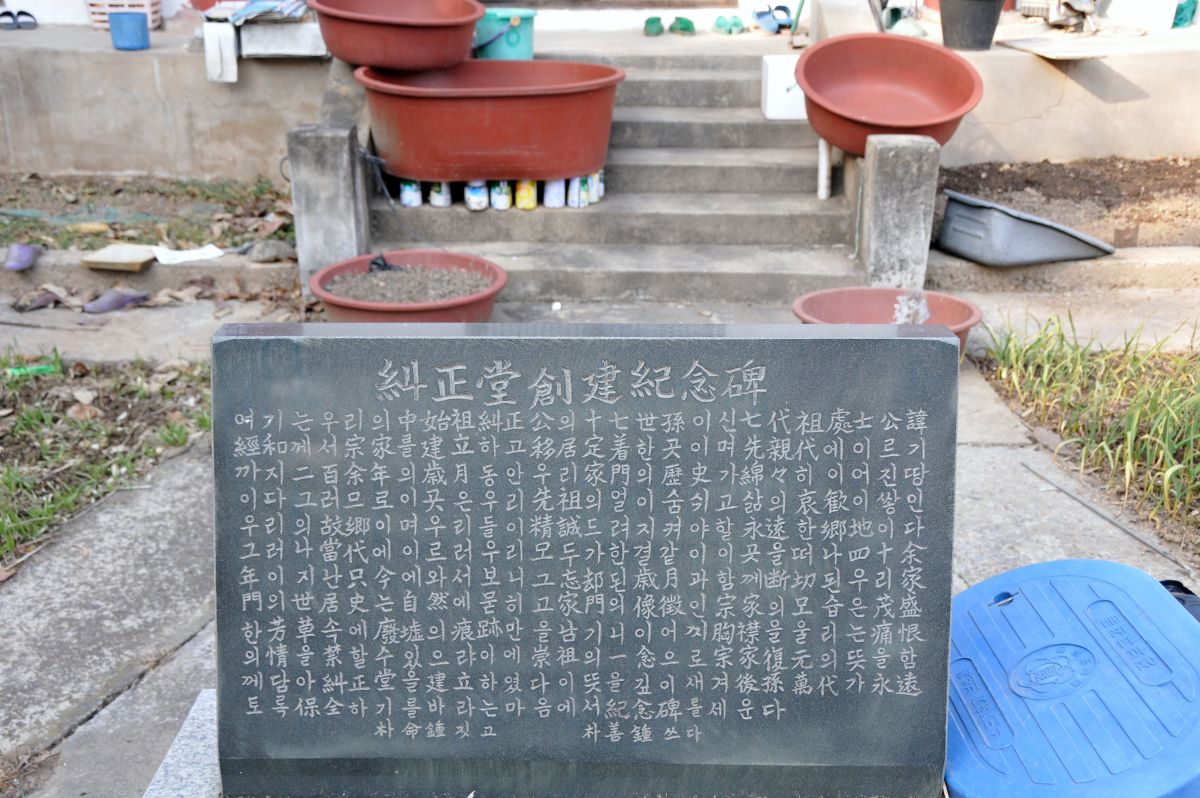 糾正堂創建紀念碑
여기는 우리의 中始祖 糾正公의 十七世孫이신 七代祖 處士公 諱
經和께서 宗家를 建立하고 移居定着한 곳이며 先代에 이르기
까지 二百余年 歲月동안 우리家門의 歷史가 綿々히 이어진 땅
이다 그러므로 이곳은 우리 先祖의 얼이 숨쉬고 삶의 哀歡이 쌍인
우리의 故鄕이며 우리들 精誠드려 지켜야할 永遠한 鄕地이다
그러나 當代에 이르러 우리 모두가 한결같이 이곳을 떠나 四十余
年이 지난 只今에 와서 보니 그 忘却된 歲月과 함께 断切된 우리家
門의 世居史는 自然에 묻히고 家門의 像徵인 宗家의 모습은 茂盛
한 芳草속에 廢墟의 痕跡만을 남기니 어찌 胸襟을 울리는 痛恨
의 情을 禁할수 있으랴 이에 崇祖의 一念으로 宗家復元의 뜻을 함
께 담아 糾正堂을 建立하였다 이 뜻을 깊이 새겨 後孫萬代가 永遠
토록 保全하기를 바라는 마음에서 紀念碑를 세운다
朴命鍾 짓고 朴善鍾 쓰다